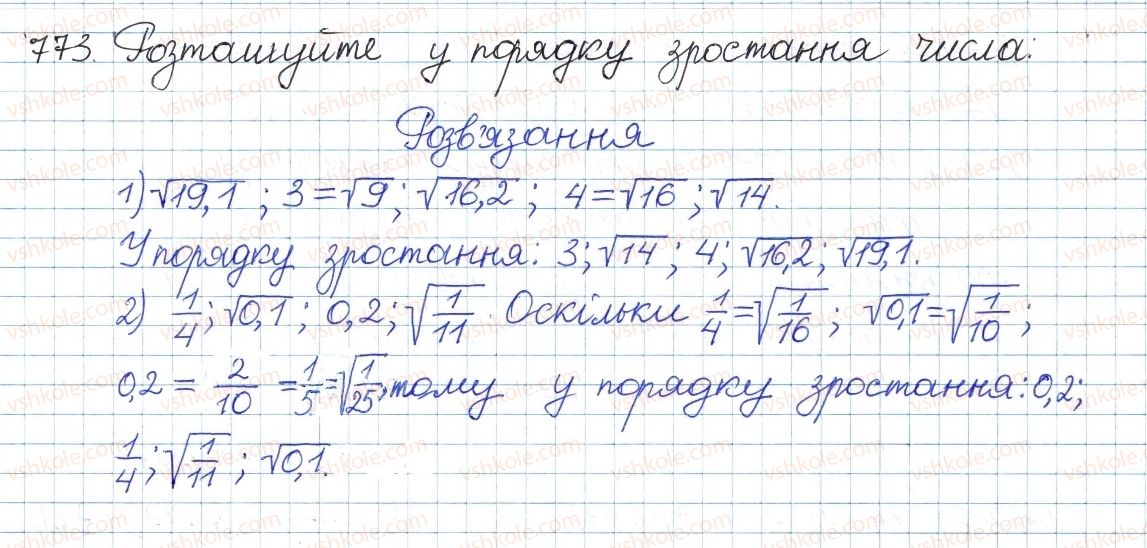 773. Розташуйте у порядку зростання числа:
Розв'язання
1) √19,1 ; 3 = √9 ; √16,2 ; 4 = √16 ; √14.
У порядку зростання: 3; √14 ; 4; √16,2 ; √19,1.
2) 1/4 ; √0,1 ; 0,2 ; √1/11 Оскільки 1/4 = √1/16 ; √0,1 = √1/10 ;
0,2 = 2/10 = 1/5 = √1/25 , тому у порядку зростання: 0,2;
1/4 ; √1/11 ; √0,1.